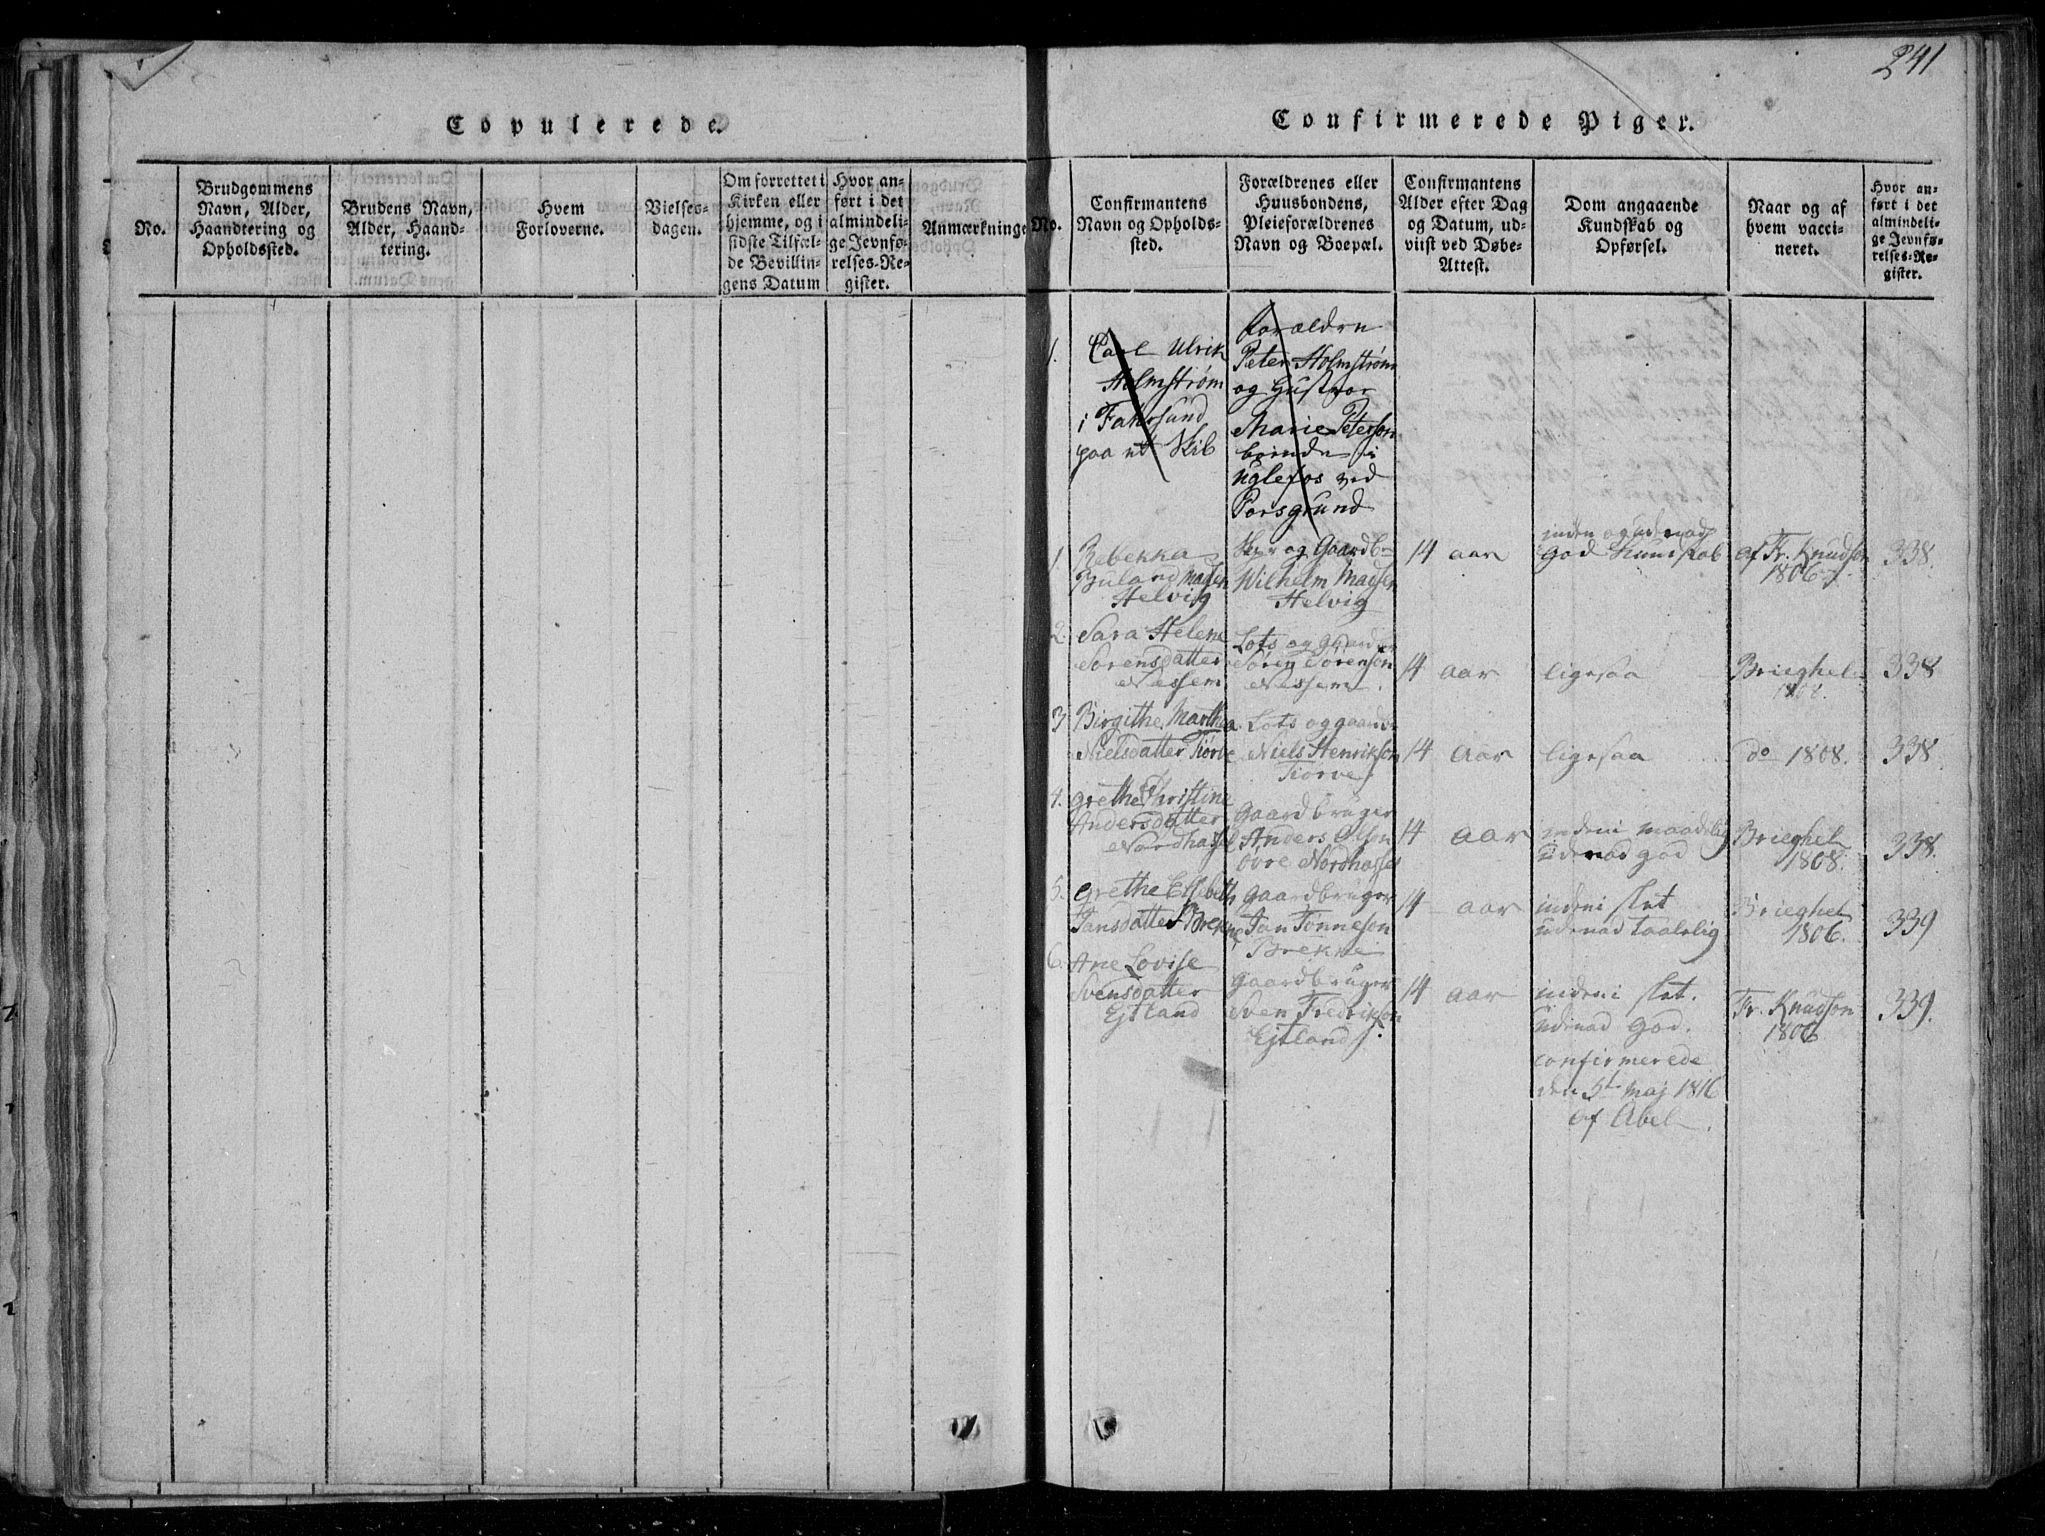 241
Copulerede.
No.
Brudgommens
Navn, Alder,
Haandtering og
Opholdssted.
Brudens Navn,
Alder, Haand-
tering.
Hvem
Forloverne.
Vielses-
dagen.
Om forrettet i
Kirken eller
hjemme, og i
sidste Tilfæl-
de Bevillin-
gens Datum
Hvor an-
ført i det
almindeli-
ge Jevnfø-
relses-Re-
gister.
Anmærkninge
Confirmerede Piger.
No.
Confirmantens
Navn og Opholds-
sted.
Forældrenes eller
Huusbondens,
Pleieforældrenes
Navn og Boepæl.
Confirmantens
Alder efter Dag
og Datum, ud-
viist ved Døbe-
Attest.
Dom angaaende
Kundskab og
Opførsel.
Naar og af
hvem vacci-
neret.
Hvor an-
ført i det
almindeli-
ge Jevnfø-
relses-Re-
gister.
1.
Carl Ulrik
Holmstrøm
i Fahrsund
paa et Skib
Forældre
Peter Holmstrøm
og Gustava
Marie Peterson
boende i
Uglefos ved
Porsgrund
1.
Rebekka
Buland Madsen
Helvig
og Gaardb
Wilhelm Madsen
Helvig
14 aar
inden og udenad
god Kundskab
af Fr. Knudson
1806
338.
2.
Sara Helene
Sorensdatter
Nessem
Lots og gaardbr
Søren Sörenson
Nessem.
14 aar
ligesaa
Brieghel
1808.
338
3.
Birgithe Marthea
Nielsdatter Tiørve
Lots og gaardbr
Niels Henrikson
Tiørve
14 aar
ligesaa
do 1808.
338
4.
Grethe Christine
Andersdatter
Nordhassel
Gaardbruger
Anders Olson
øvre Nordhassel
14 aar
indeni maadelig
udenad god
Brieghel
1808.
338.
5.
Grethe Elsebeth
Jansdatter Brekne
Gaardbruger
Jan Tønneson
Brekne
14 aar
indeni slet
udenad taalelig
Brieghel
1806.
339
6.
Ane Lovise
Svensdatter
Ejtland
Gaardbruger
Sven Fredrikson
Ejtland
14 aar
indeni slet.
udenad god.
Fr. Knudson
1806
339.
confirmerede
den 5te Maj 1816
af Abel.